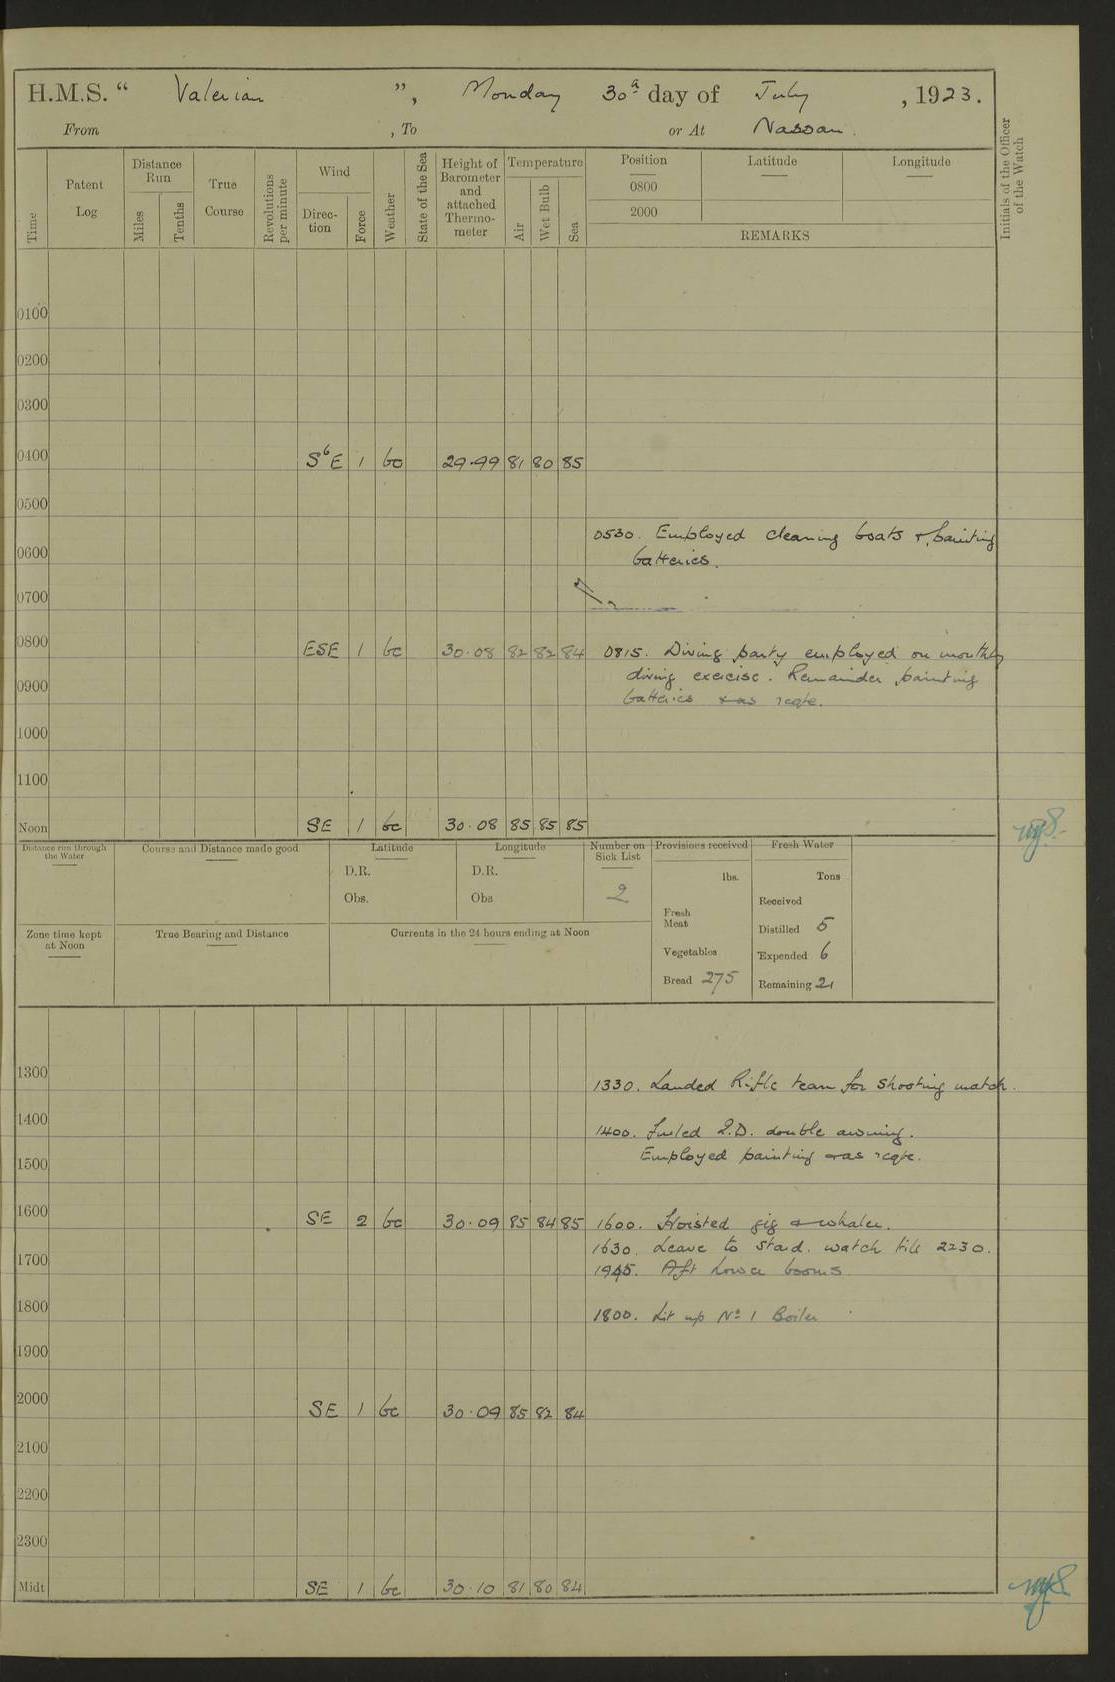 H.M.S. “ Valerian ”, Monday 30th day of July, 1923.
From , To or At Nassau.
Time
Patent Log
Distance Run
Miles
Tenths
True Course
Revolutions per minute
Wind
Direc-tion
Force
Weather
State of the Sea
Height of Barometer and attached Thermo-meter
Temperature
Air
Wet Bulb
Sea
Position Latitude Longitude
0800
2000
REMARKS
Initials of the Officer of the Watch
0100
0200
0300
0400 SbE 1 bc 29.99 81 80 85
0500
0530. Employed cleaning boats & painting
0600 batteries.
0700
0800 ESE 1 bc 30.08 82 82 84 0815. Diving party employed on monthly
0900 diving exercise. Remainder painting
batteries & as reqte.
1000
1100
Noon SE 1 bc 30.08 85 85 85
Distance run through the Water
Course and Distance made good
Latitude
D.R.
Obs.
Longitude
D.R.
Obs
Number on Sick List
2
Provisions received
lbs.
Fresh Meat
Vegetables
Bread 275
Fresh Water
Tons
Received
Distilled 5
Expended 6
Remaining 21
Zone time kept at Noon
True Bearing and Distance
Currents in the 24 hours ending at Noon
1300
1330. Landed Rifle team for shooting match.
1400
1400. Furled Q.D. double awning.
1500 Employed painting & as reqte.
1600 SE 2 bc 30.09 85 84 85 1600. Hoisted gig & whaler.
1630. Leave to Stard. watch till 2230.
1700
1945. Aft Lower booms
1800 1800. Lit up No 1 Boiler
1900
2000 SE 1 bc 30.09 85 82 84
2100
2200
2300
Midt SE 1 bc 30.10 81 80 84